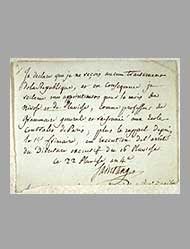 Je declare que je ne reçois aucun traitement
de la République, et en conséquence je
réclame mes appointemens pour le mois de
Nivôse et de Pluviôse, comme professeur de
Grammaire generale et raisonnée aux Ecoles
Centrales de Paris, plus le rappel depuis
le 1er frimaire, en execution de l'arrêté
du Directoire executif du 16 Pluviôse
ce 22 Pluviôse an 4e